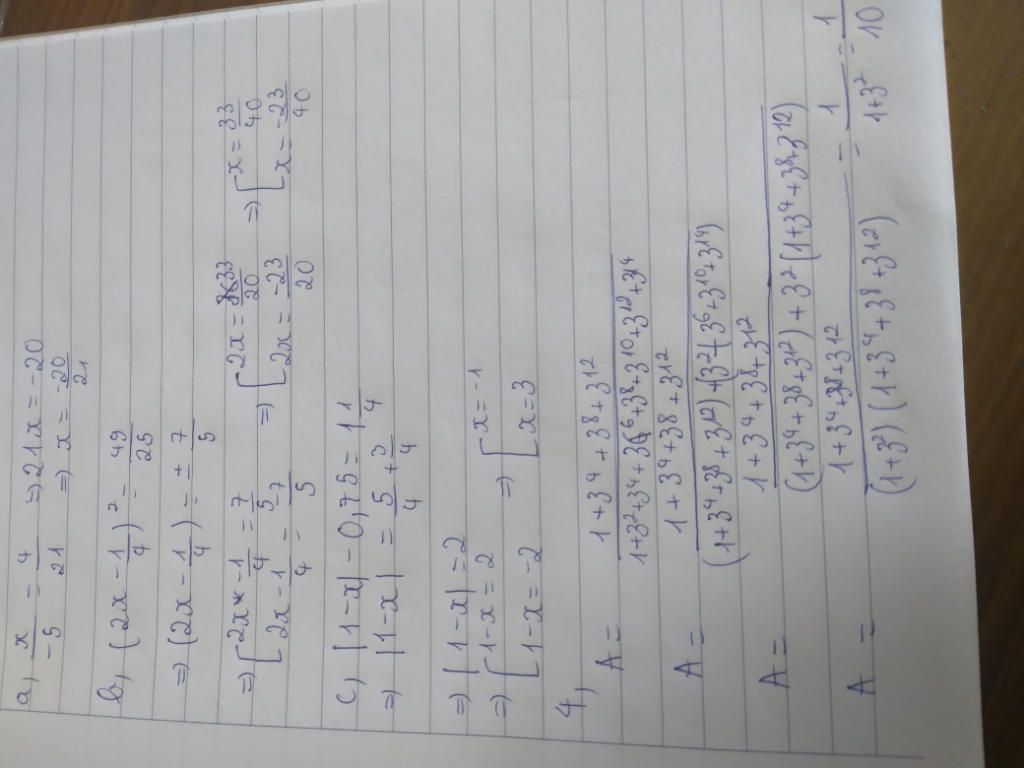 a, x/-5 = 4/21 => 21x = -20
=> x = -20/21
b, (2x - 1/4)² = 49/25
=> (2x - 1/4) = ± 7/5
=> [ 2x - 1/4 = 7/5 => [ 2x = 33/20 => [ x = 33/40
2x - 1/4 = -7/5 2x = -23/20 x = -23/40
c, |1-x| - 0,75 = 1 1/4
=> |1-x| = 5/4 + 3/4
=> |1-x| = 2
=> [ 1-x = 2 => [ x = -1
1-x = -2 x = 3
4,
A = (1+3⁴+3⁸+3¹²)/(1+3²+3⁴+3⁶+3⁸+3¹⁰+3¹²+3¹⁴)
A = (1+3⁴+3⁸+3¹²)/((1+3⁴+3⁸+3¹²)+(3²+3⁶+3¹⁰+3¹⁴))
A = (1+3⁴+3⁸+3¹²)/((1+3⁴+3⁸+3¹²)+3²(1+3⁴+3⁸+3¹²))
A = (1+3⁴+3⁸+3¹²)/((1+3²)(1+3⁴+3⁸+3¹²)) = 1/(1+3²) = 1/10